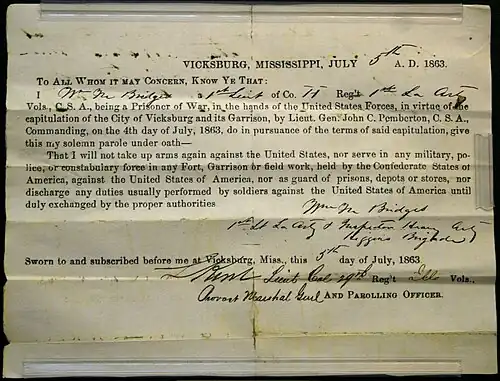 VICKSBURG, MISSISSIPPI, JULY 5th A. D. 1863.
TO ALL WHOM IT MAY CONCERN, KNOW YE THAT:
I Wm M Bridges a 1st Lieut of Co. H Reg't 1st La Arty
Vols., C. S. A., being a Prisoner of War, in the hands of the United States Forces, in virtue of the
capitulation of the City of Vicksburg and its Garrison, by Lieut. Gen. John C. Pemberton, C. S. A.,
Commanding, on the 4th day of July, 1863, do in pursuance of the terms of said capitulation, give
this my solemn parole under oath—
That I will not take up arms again against the United States, nor serve in any military, po-
lice, or constabulary force in any Fort, Garrison or field work, held by the Confederate States of
America, against the United States of America, nor as guard of prisons, depots or stores, nor
discharge any duties usually performed by soldiers against the United States of America until
duly exchanged by the proper authorities
Wm M Bridges
1st Lt La Arty & Inspector Heavy Arty
Higgins Brigade
Sworn to and subscribed before me at Vicksburg, Miss., this 5th day of July, 1863
Lieut Col 29th Reg't Ill Vols.,
Provost Marshal Genl AND PAROLLING OFFICER.